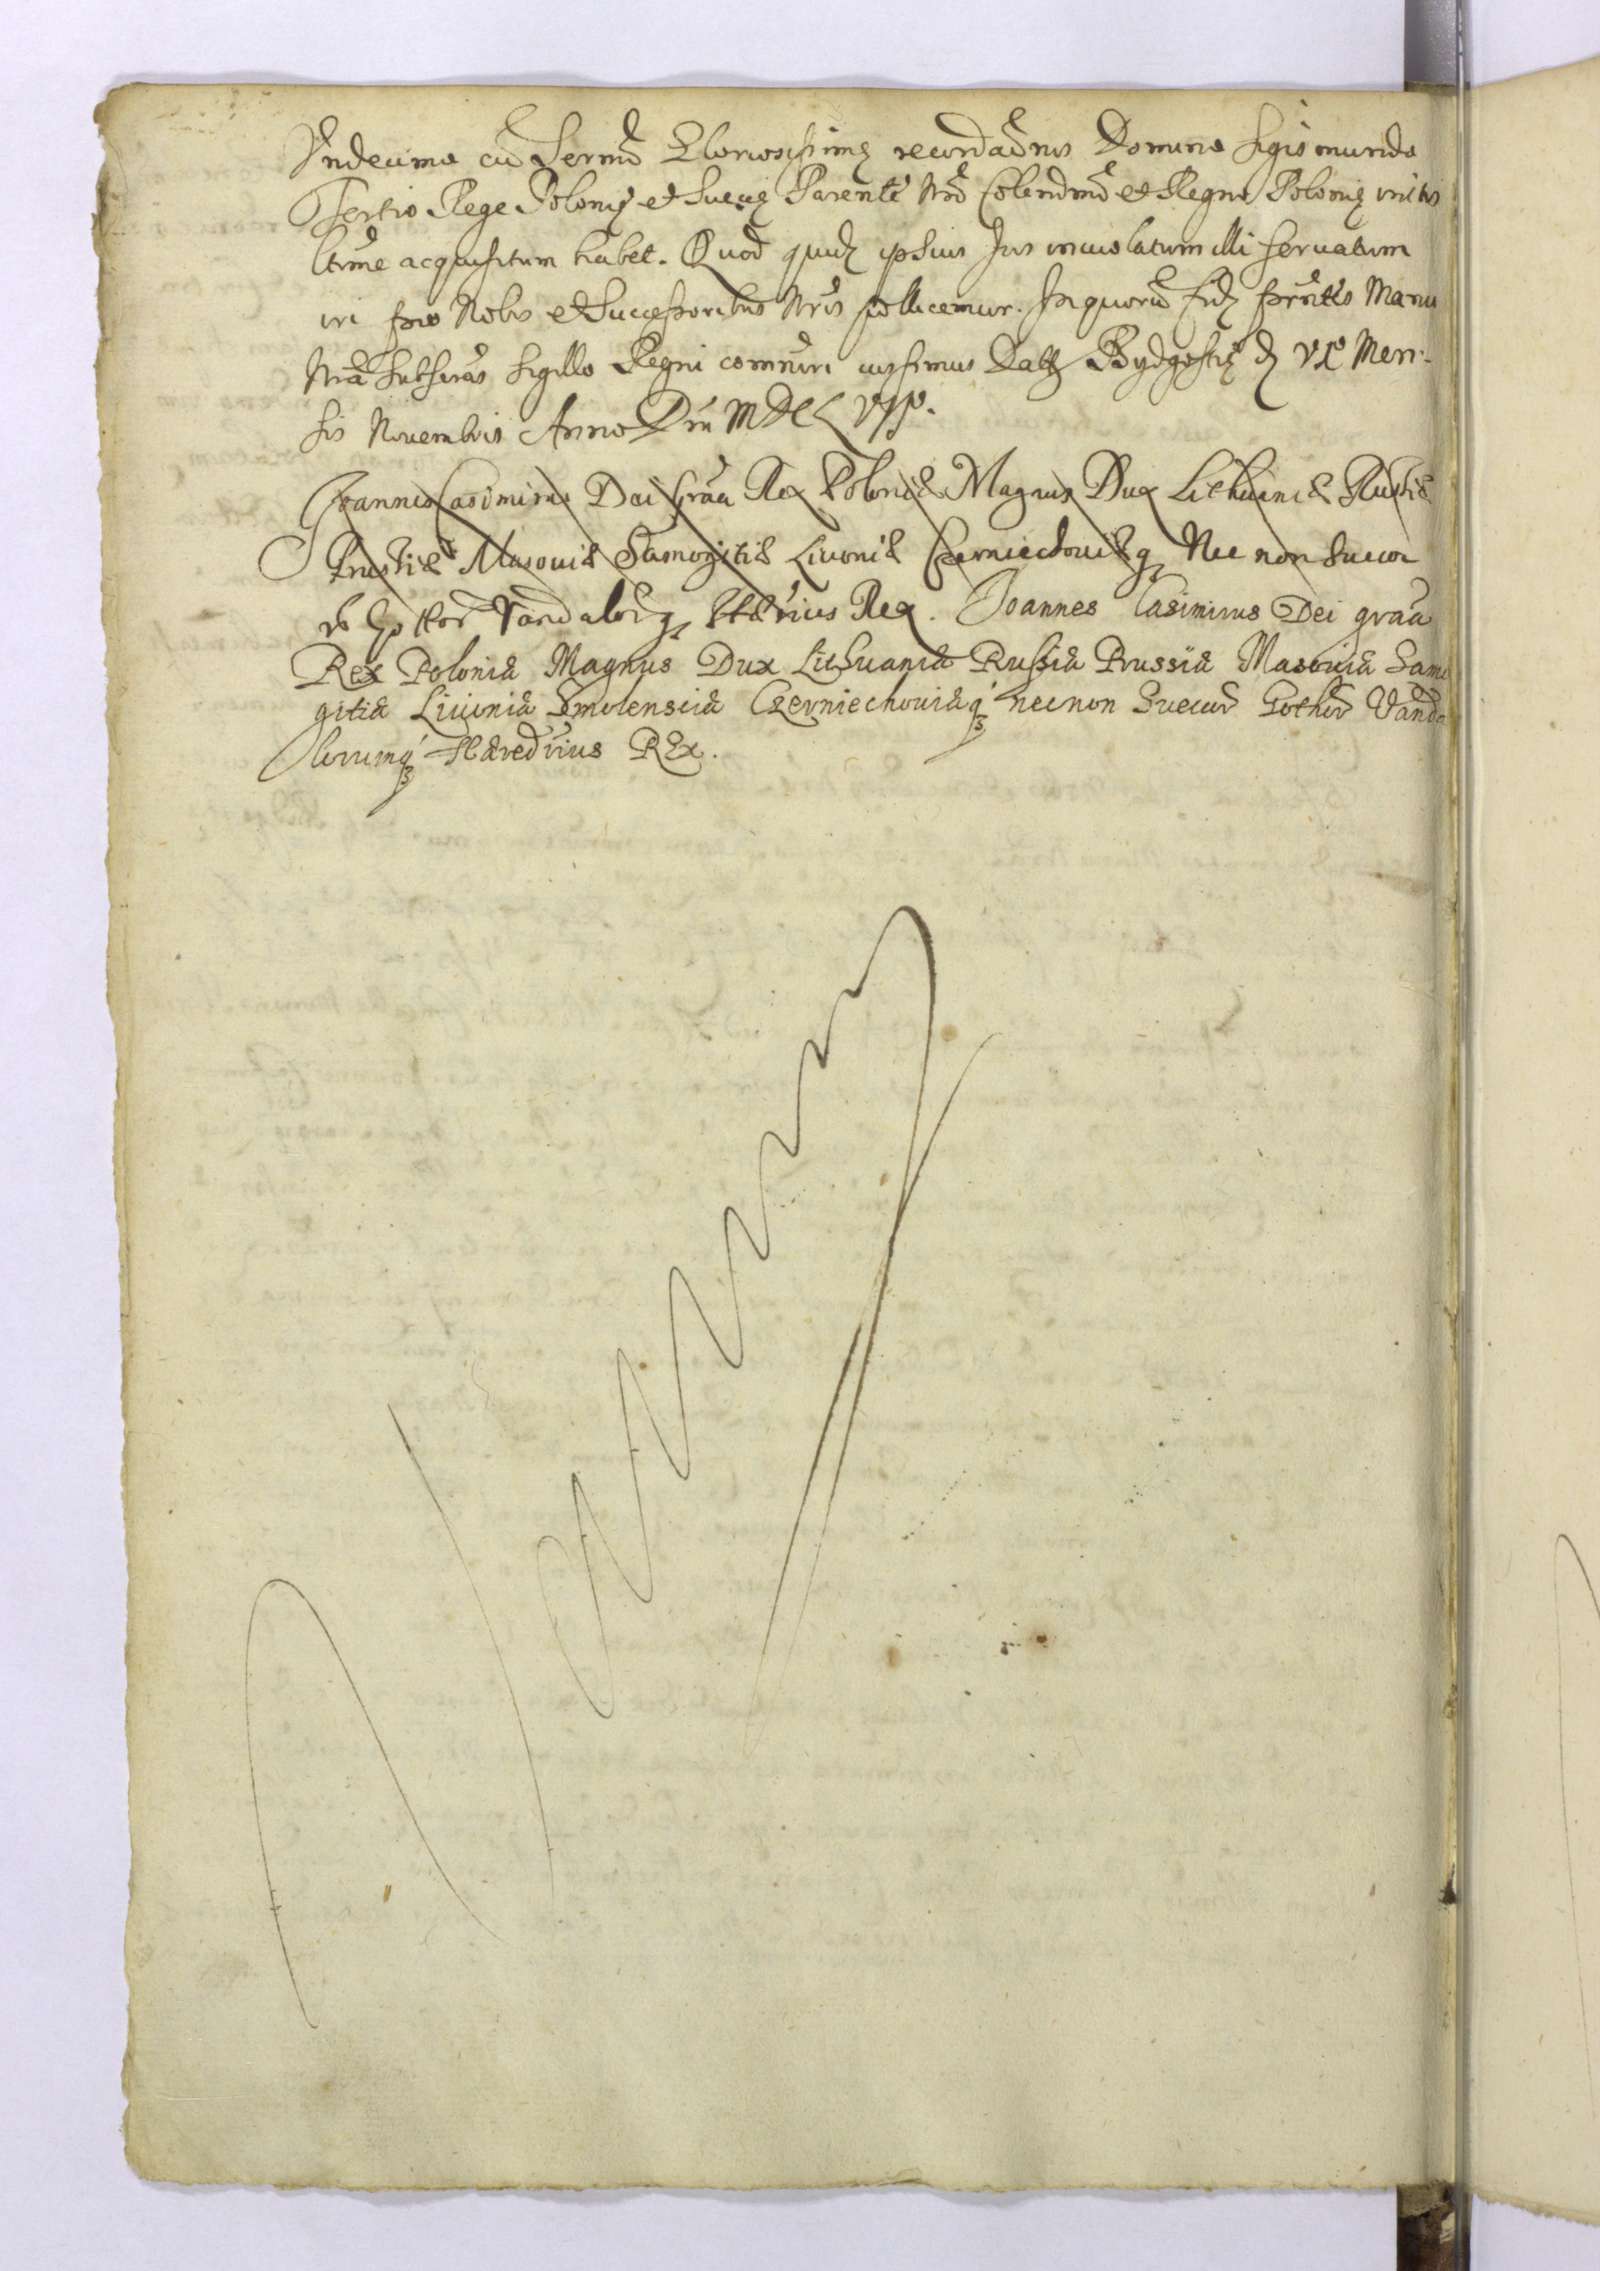 Undecimo cū Sermō Gloriosissimę recordaōnis Domino Sigismundo
Tertio Rege Polonię et Suecię Parentē Nrō Colendmō et Regno Polonię initis
ltime acquisitum habet. Quod quidē ipsius Jus inviolatum illi servatum
iri pro Nobis et Successoribus Nris pollicemur. In quorū fidē prntes Manu
Nrā subscrās Sigillo Regni comūniri iussimus Datt Bydgostię d VI Men-
sis Novembris Anno Dni MDCLVII.
Joannes Casimirus Dei Grāa Rex Poloniæ Magnus Dux Lithuaniæ Russiæ
Prussiæ Masoviæ Samogitiæ Livoniæ Czerniechoviæq Nec non Suecor
Vandalorq Rex. Joannes Casimirus Dei grāa
Rex Poloniæ Magnus Dux Lithuaniæ Russiæ Prussiæ Masoviæ Samo
gitiæ Livoniæ Smolensciæ Czerniechoviæq́ necnon Suecor̄ Gothor̄ Vanda
lorumq́ Hæred̄rius REx.